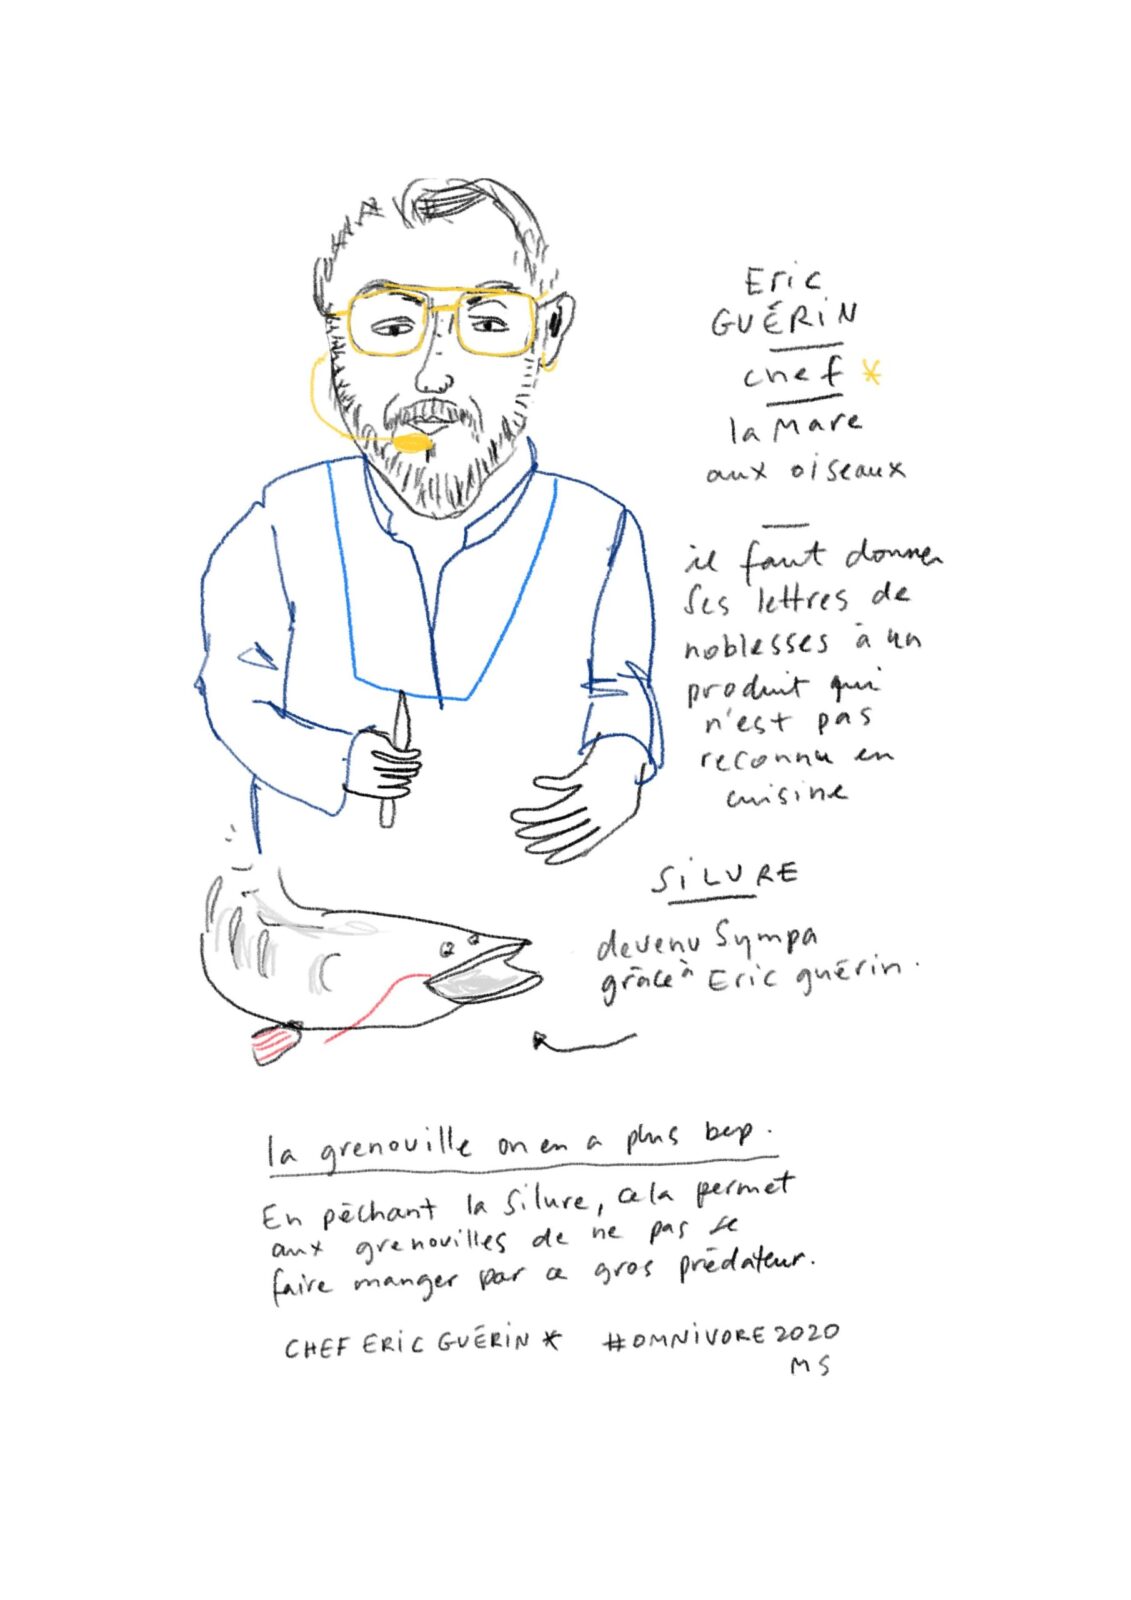 Eric
GUÉRIN
chef *
la Mare
aux oiseaux
il faut donner
ses lettres de
noblesses à un
produit qui
n'est pas
reconnu en
cuisine
SILURE
devenu Sympa
grâce à Eric guérin.
la grenouille on en a plus bcp.
En pêchant la Silure, cela permet
aux grenouilles de ne pas se
faire manger par ce gros prédateur.
CHEF ERIC GUÉRIN * #OMNIVORE2020
MS